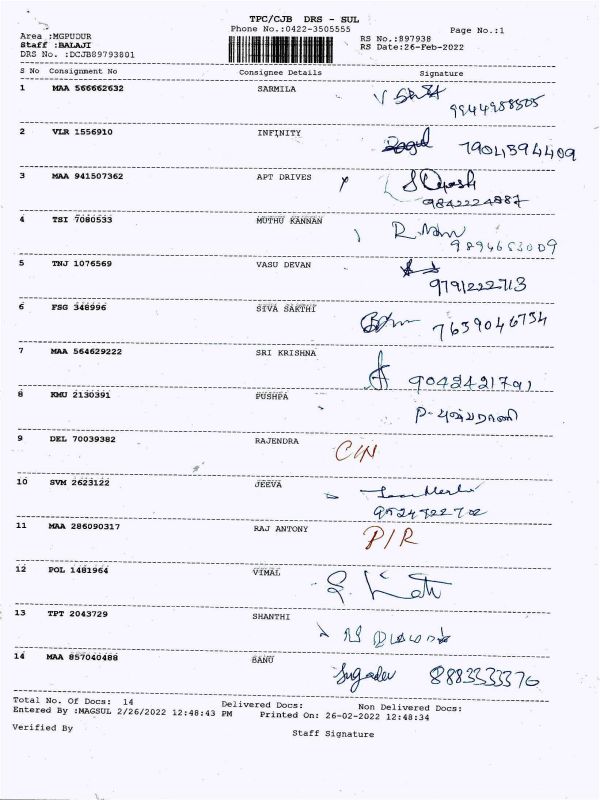 TPC/CJB DRS - SUL
Phone No.:0422-3505555
Page No.:1
Area :MGPUDUR
RS No.:897938
Staff :BALAJI
RS Date:26-Feb-2022
DRS No. :DCJB89793801
S No Consignment No Consignee Details Signature
1 MAA 566662632 SARMILA
9944958505
2 VLR 1556910 INFINITY
7904394409
3 MAA 941507362 APT DRIVES
9842224887
4 TSI 7080533 MUTHU KANNAN
9894653009
5 TNJ 1076569 VASU DEVAN
9791222713
6 FSG 348996 SIVA SAKTHI
7639046734
7 MAA 564629222 SRI KRISHNA
9042421791
8 KMU 2130391 PUSHPA
9 DEL 70039382 RAJENDRA C/N
10 SVM 2623122 JEEVA
11 MAA 286090317 RAJ ANTONY P/R
12 POL 1481964 VIMAL
13 TPT 2043729 SHANTHI
14 MAA 857040488 BANU
8883333370
Total No. Of Docs: 14 Delivered Docs: Non Delivered Docs:
Entered By :MAGSUL 2/26/2022 12:48:43 PM Printed On: 26-02-2022 12:48:34
Verified By
Staff Signature